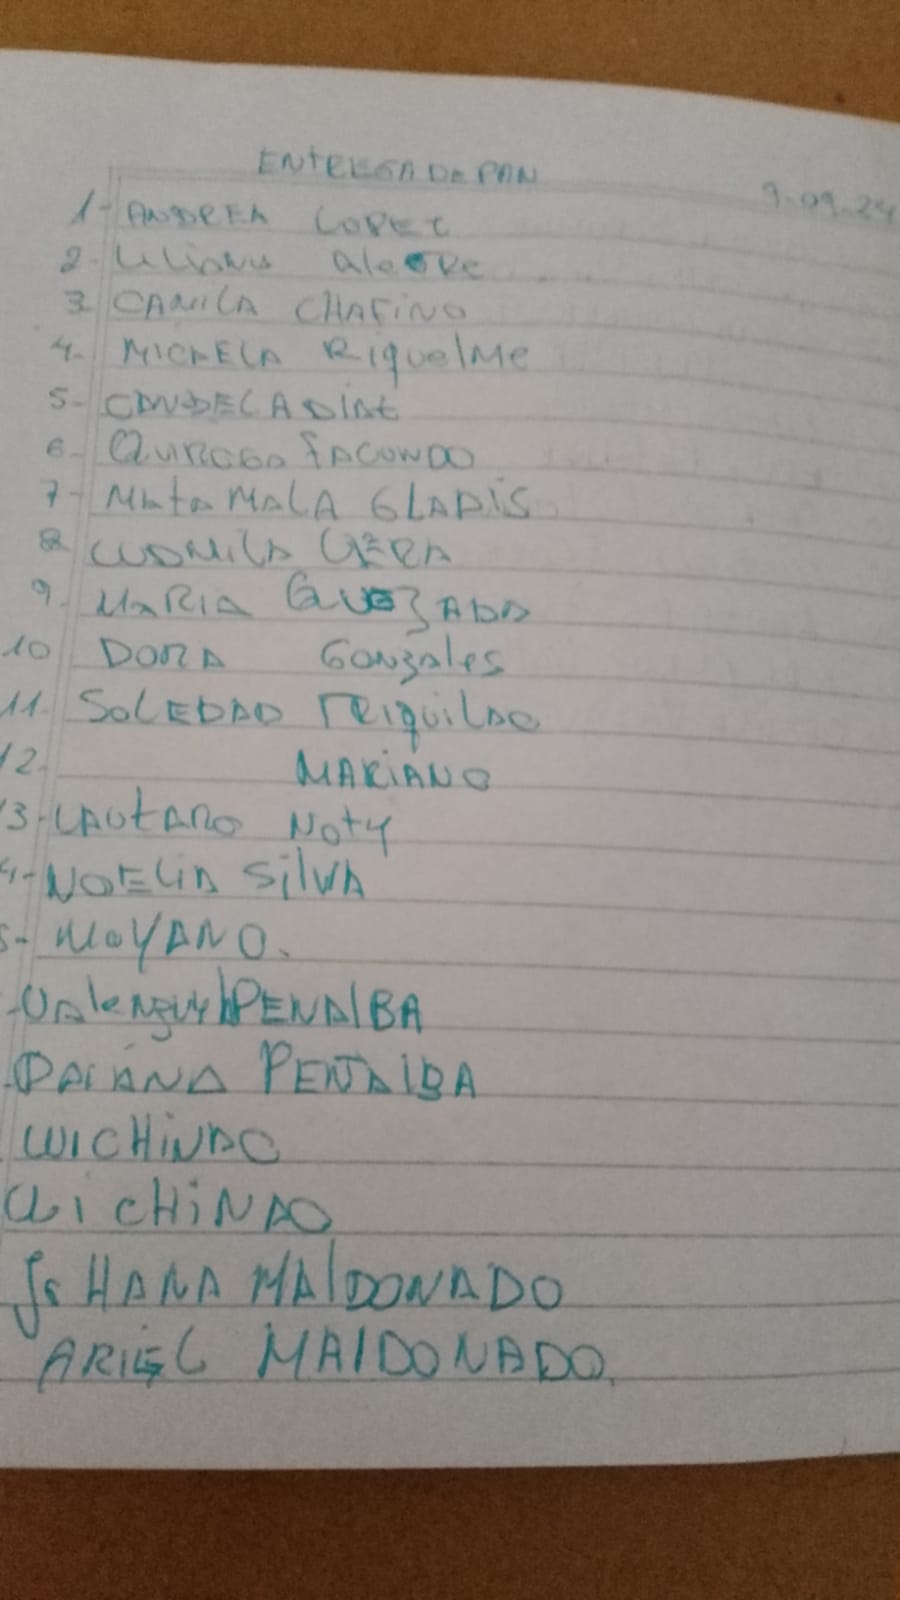 ENTREGA DE PAN
9.09.24
1- ANDREA LOPEZ
2- Liliana aleGRe
3- CAMILA CHAFINO
4.- MICAELA RIquelMe
5- CANDELA DIAZ
6- QUIROGA FACUNDO
7- MAtA MALA GLADIS
8 LUDMILA VERA
9- MARIA QUEZADA
10 DORA Gonzales
11- SOLEDAD TRIQUILAO
12- MARIANO
13- LAUtARO Noty
4- NOELIA SilVA
5- MOYANO.
PENAlBA
DAIANA PENAlBA
WICHINAO
WICHINAO
JoHANA MAlDONADO
ARIEL MAlDONADO.